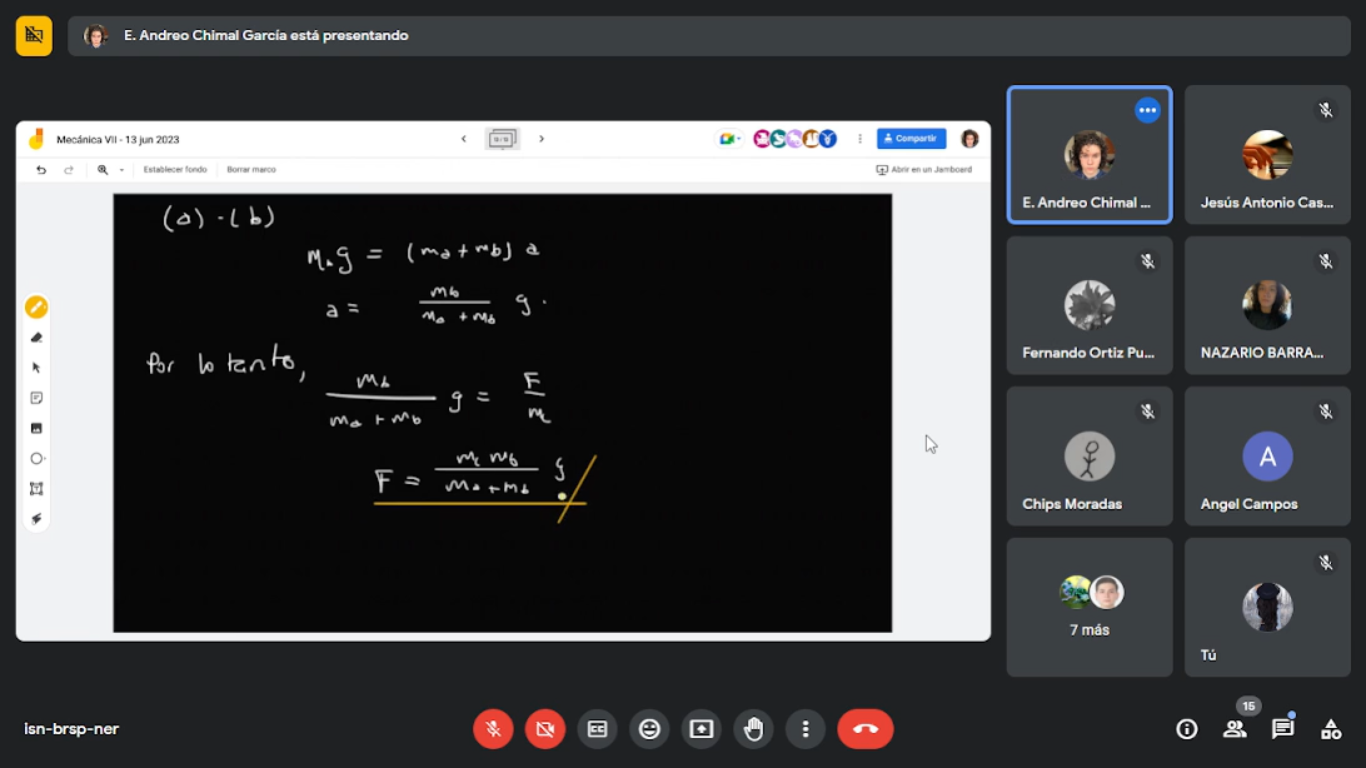 E. Andreo Chimal García está presentando
Mecánica VII - 13 jun 2023
Compartir
Establecer fondo
Borrar marco
Abrir en un Jamboard
(a) - (b)
m_b g = (m_a + m_b) a
a = m_b / (m_a + m_b) g.
Por lo tanto,
m_b / (m_a + m_b) g = F / m_c
F = m_c m_b / (m_a + m_b) g
E. Andreo Chimal ...
Jesús Antonio Cas...
Fernando Ortiz Pu...
NAZARIO BARRA...
Chips Moradas
A
Angel Campos
7 más
Tú
isn-brsp-ner
CC
15